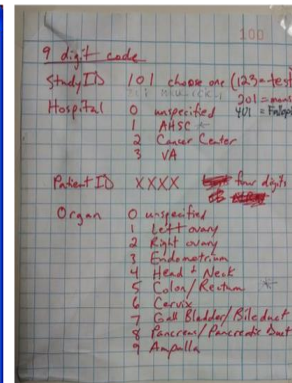 100
9 digit code
Study ID 101 choose one (123=test
201=mans
Hospital 0 unspecified 401 =
1 AHSC *
2 Cancer Center
3 VA
Patient ID XXXX four digits
Organ 0 unspecified
1 Left ovary
2 Right ovary
3 Endometrium
4 Head & Neck
5 Colon/Rectum *
6 Cervix
7 Gall Bladder/Bile duct
8 Pancreas/Pancreatic Duct
9 Ampulla